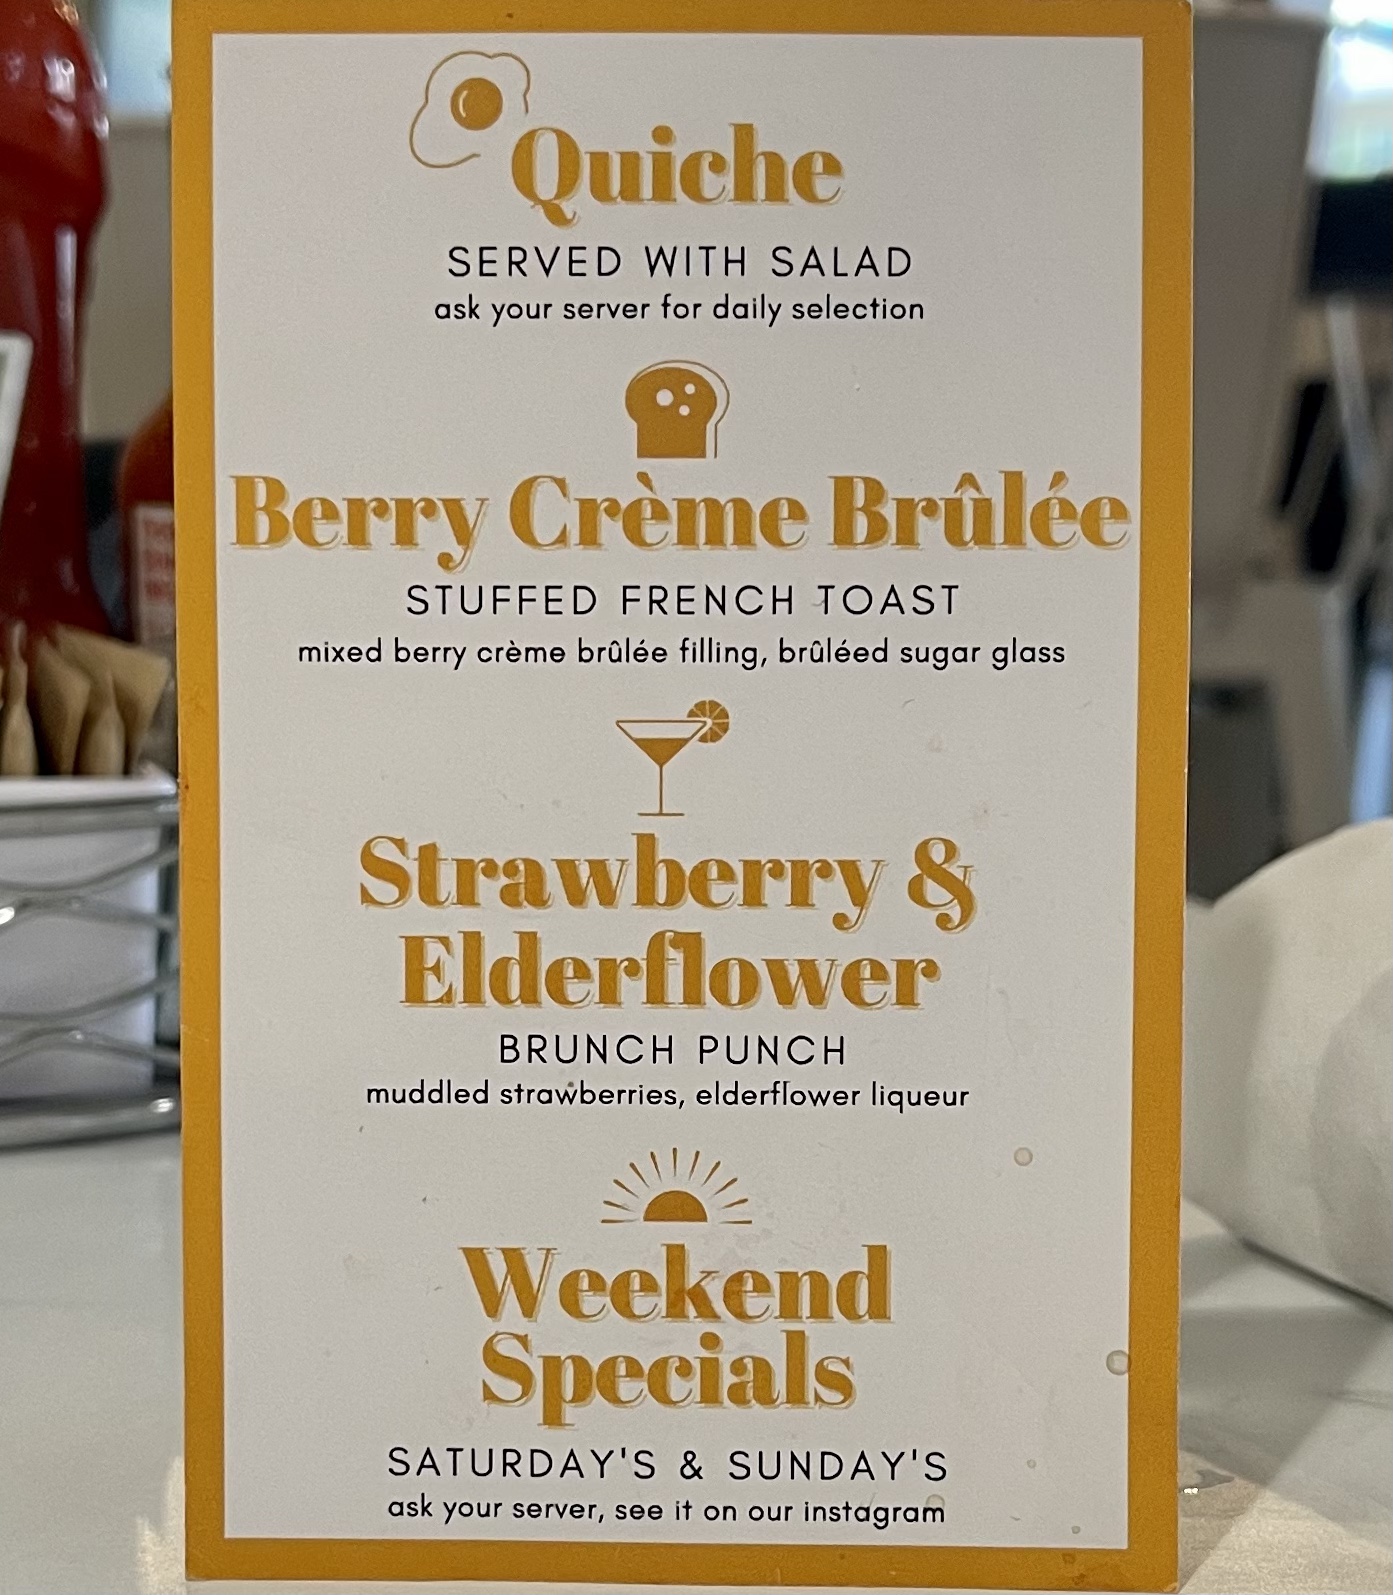 Quiche
SERVED WITH SALAD
ask your server for daily selection
Berry Crème Brûlée
STUFFED FRENCH TOAST
mixed berry crème brûlée filling, brûléed sugar glass
Strawberry &
Elderflower
BRUNCH PUNCH
muddled strawberries, elderflower liqueur
Weekend
Specials
SATURDAY'S & SUNDAY'S
ask your server, see it on our instagram